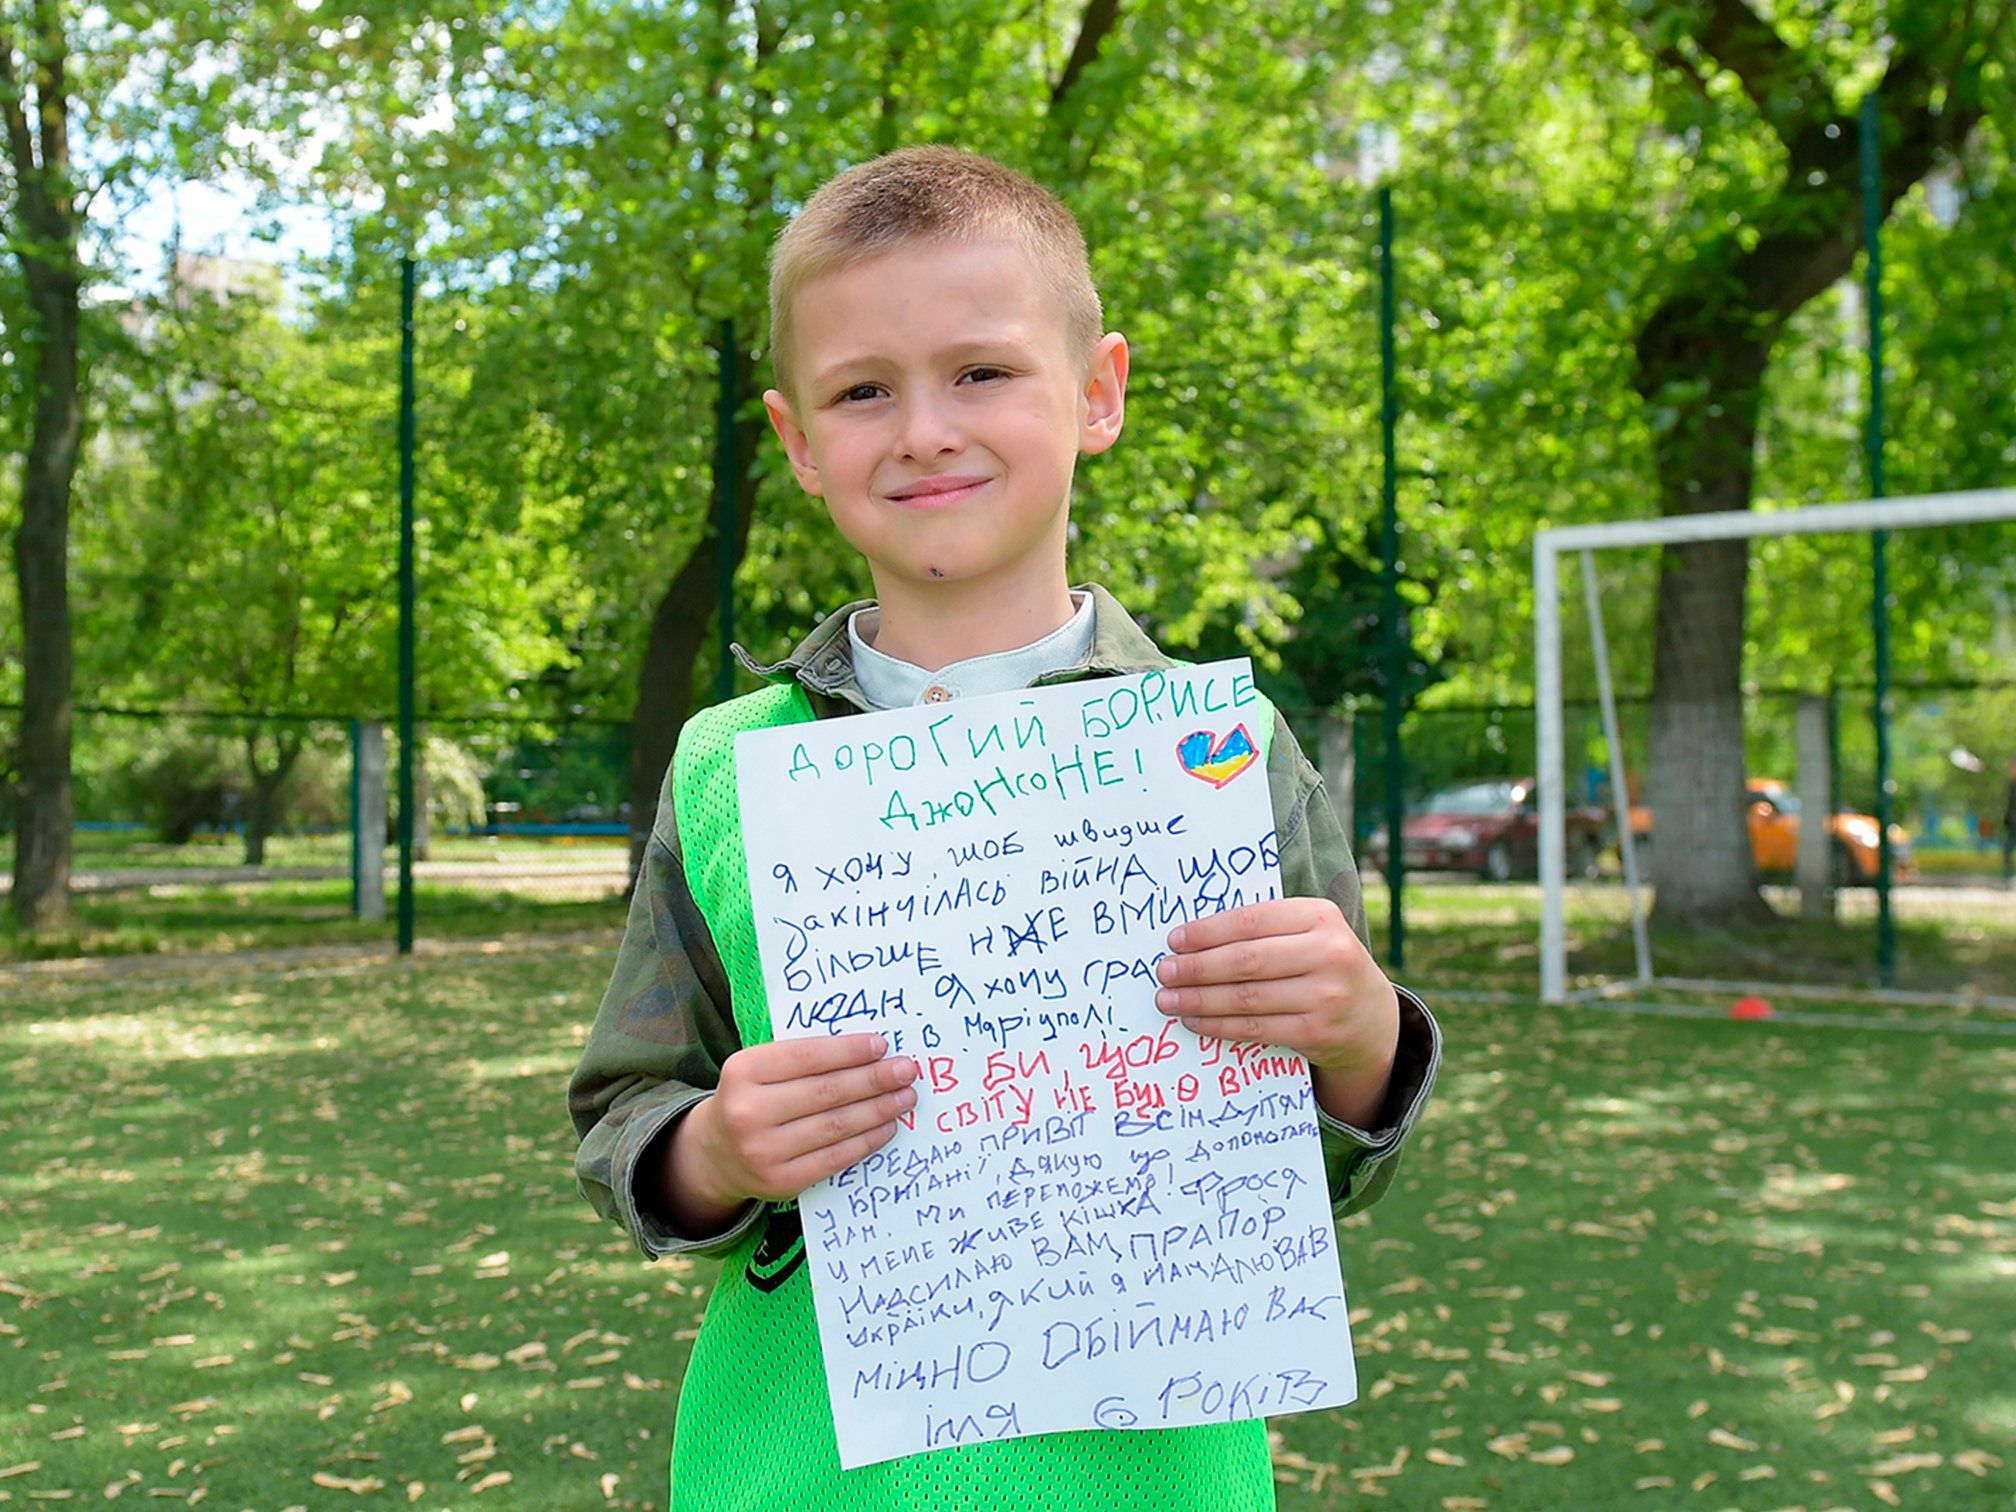 ДОРОГИЙ БОРИСЕ
ДЖОНСОНЕ!
Я ХОЧУ, ЩОБ ШВИДШЕ
ЗАКІНЧІЛАСЬ ВІЙНА ЩОБ
БІЛЬШЕ НЕ ВМИРАЛИ
ЛЮДИ. Я ХОЧУ
В МАРІУПОЛІ
БИ, ЩОБ
СВІТУ НЕ БУЛО ВІЙНИ
ПЕРЕДАЮ ПРИВІТ ВСІМ ДІТЯМ
У БРИТАНІЇ, ДЯКУЮ ЩО ДОПОМОГАЄТЕ
НАМ. МИ ПЕРЕМОЖЕМО!
У МЕНЕ ЖИВЕ КІШКА ФРОСЯ
НАДСИЛАЮ ВАМ ПРАПОР
УКРАЇНИ, ЯКИЙ Я НАМАЛЮВАВ
МІЦНО ОБІЙМАЮ ВАС
ІЛЛЯ 6 РОКІВ